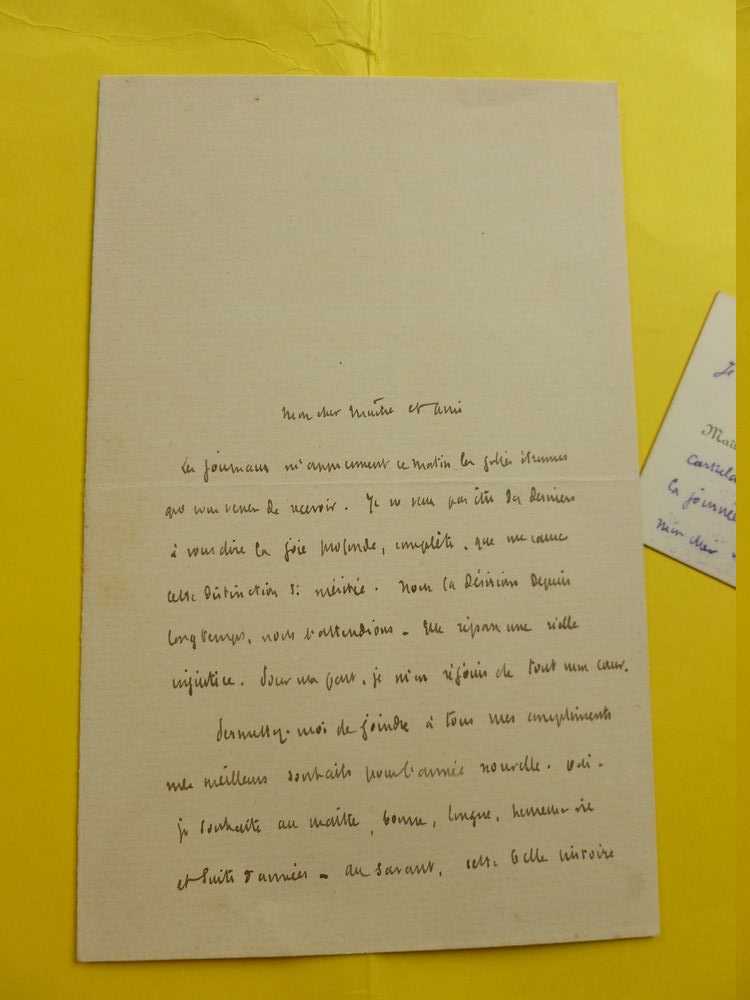 Mon cher Maître et ami
Les journaux m'apprennent ce matin les jolies étrennes
que vous venez de recevoir. Je ne veux pas être des derniers
à vous dire la joie profonde, complète, que me cause
cette distinction si méritée. Nous la désirions depuis
longtemps, nous l'attendions. Elle répare une réelle
injustice. Pour ma part, je m'en réjouis de tout mon cœur.
Permettez-moi de joindre à tous mes compliments
mes meilleurs souhaits pour l'année nouvelle. Oui.
je souhaite au maître, bonne, longue, heureuse vie
et suite d'années. au savant, cette belle histoire
Je
Mais
la journée
mon cher